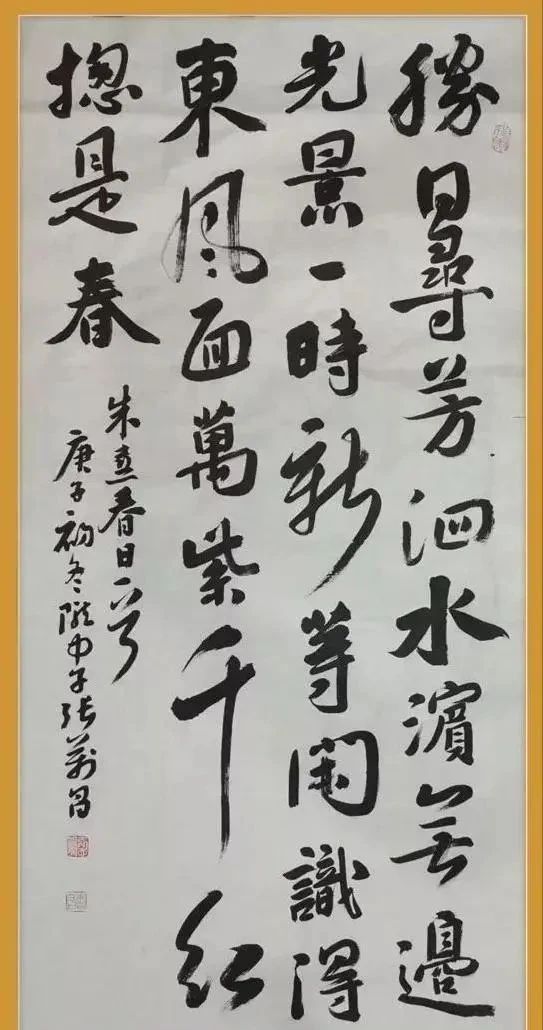 勝日尋芳泗水濱無邊
光景一時新等閑識得
東風面萬紫千紅
揔是春
朱熹春日一首
庚子初冬隴中子張萬昌